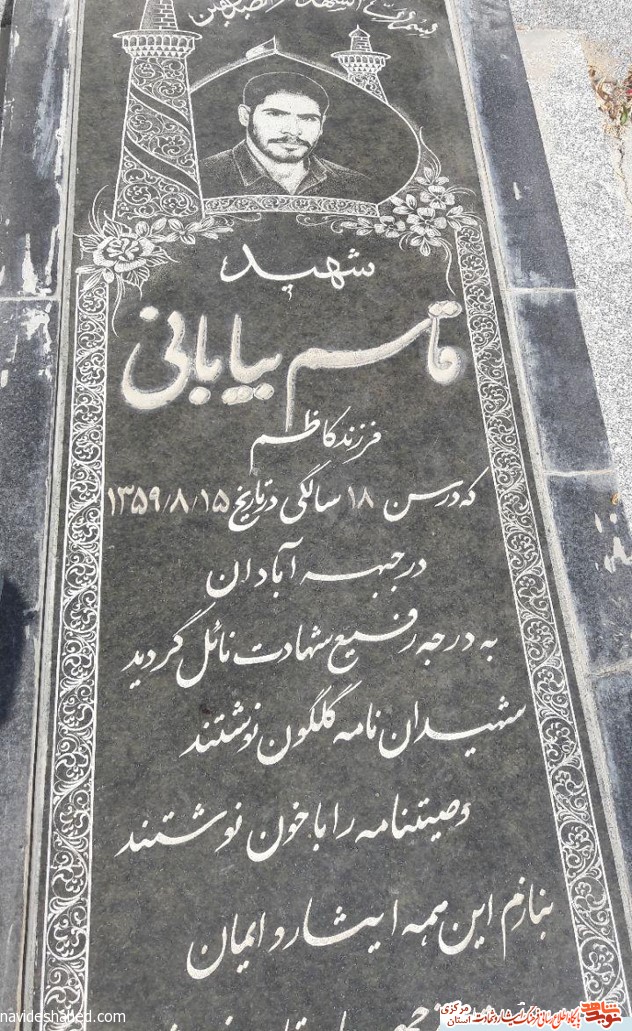 شهید
قاسم بیابانی
فرزند کاظم
که در سن ۱۸ سالگی در تاریخ ۱۳۵۹/۸/۱۵
در جبهه آبادان
به درجه رفیع شهادت نائل گردید
شهیدان نامه گلگون نوشتند
وصیتنامه را با خون نوشتند
بنازم این همه ایثار و ایمان
navideshahed.com
نوید شاهد
پایگاه اطلاع رسانی فرهنگ ایثار و شهادت
استان مرکزی